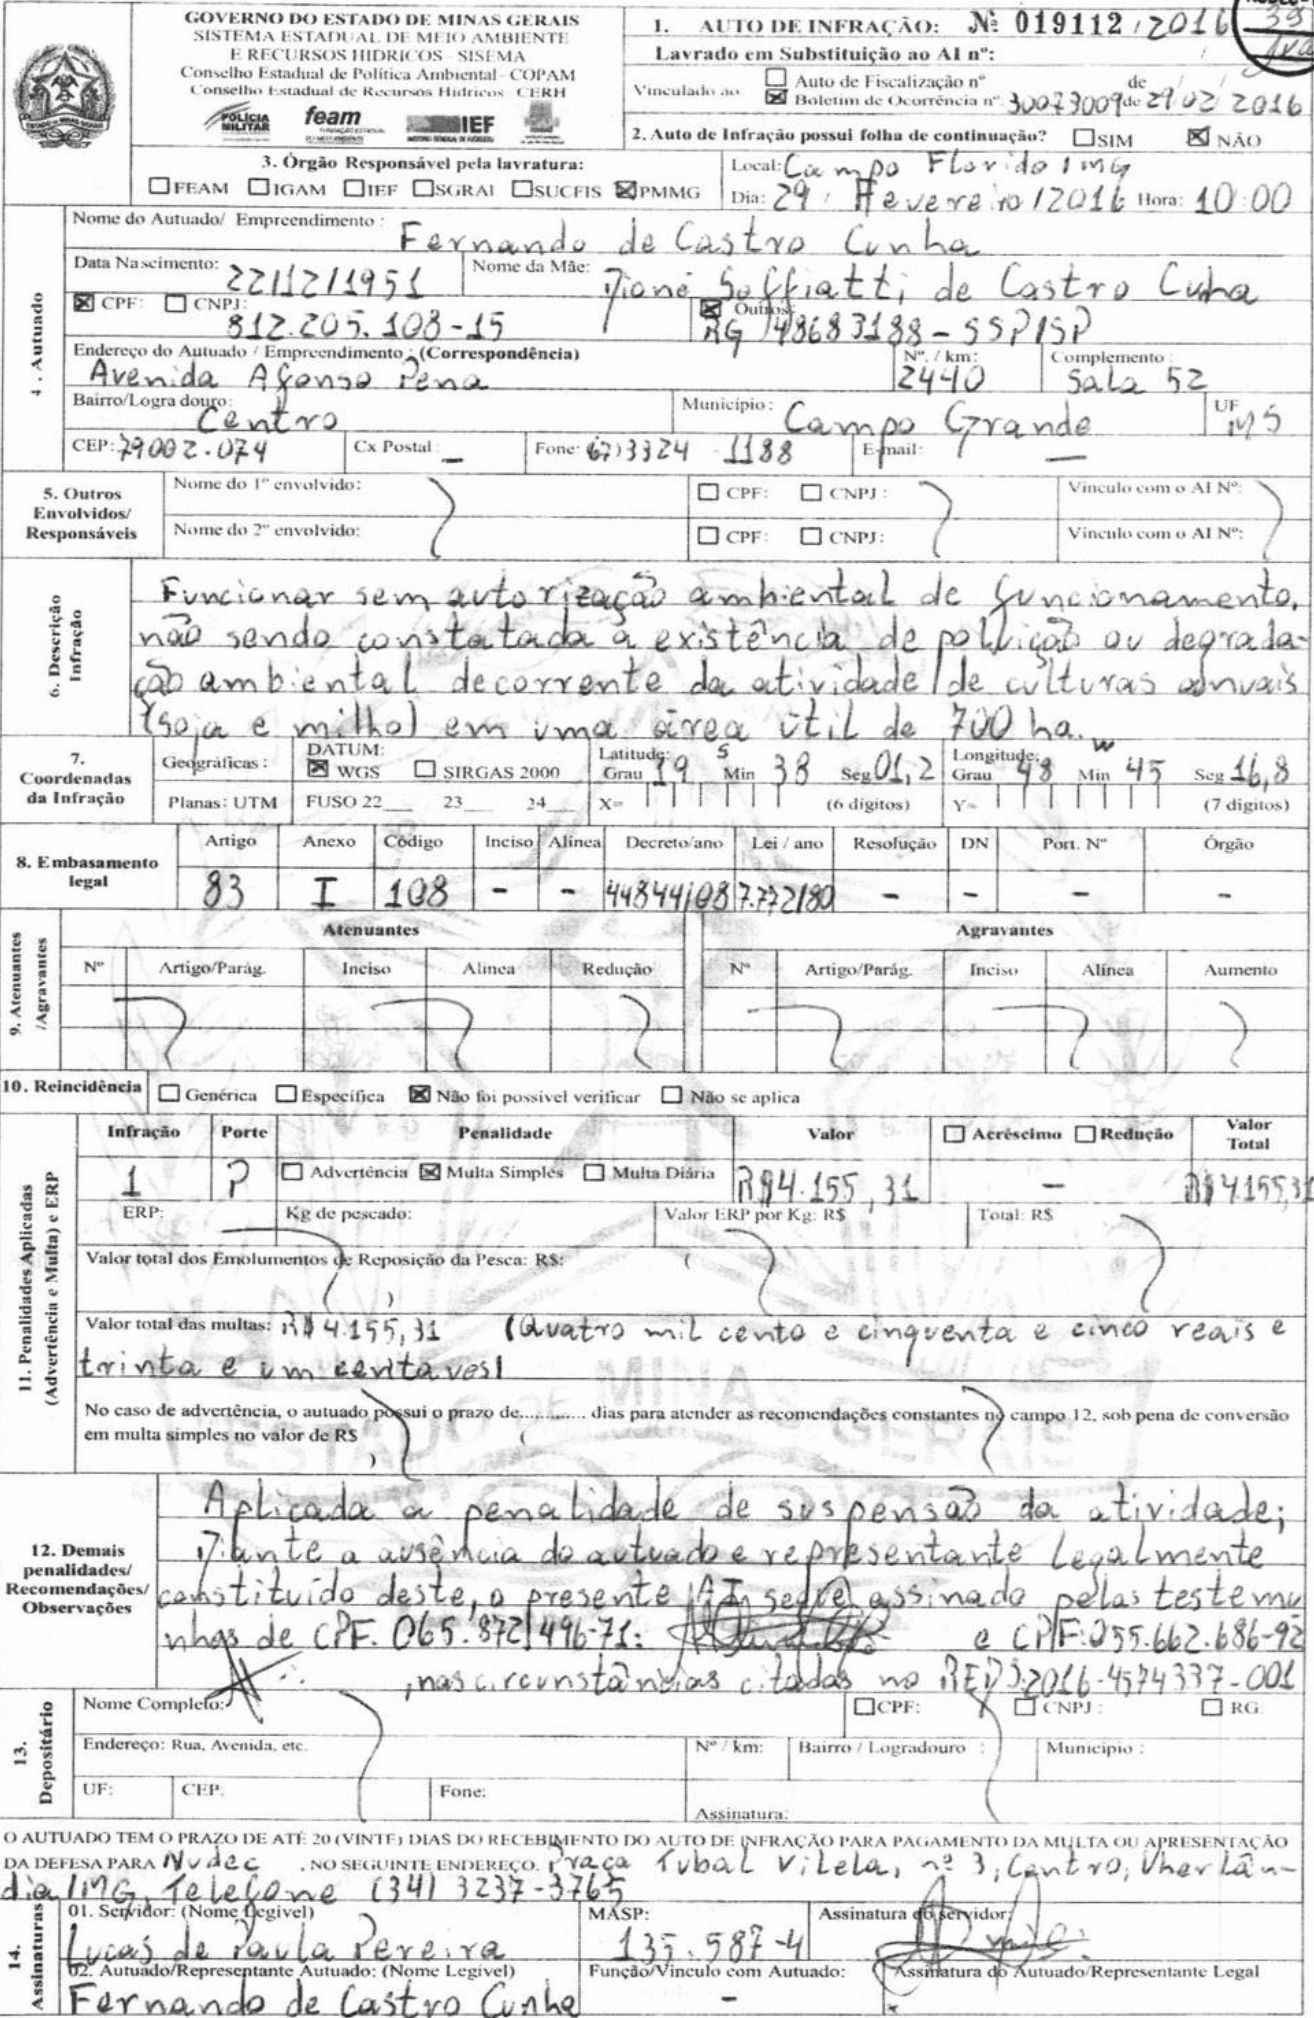 GOVERNO DO ESTADO DE MINAS GERAIS
SISTEMA ESTADUAL DE MEIO AMBIENTE
E RECURSOS HIDRICOS - SISEMA
Conselho Estadual de Política Ambiental - COPAM
Conselho Estadual de Recursos Hídricos - CERH
POLÍCIA MILITAR feam IEF
1. AUTO DE INFRAÇÃO: Nº 019112 / 2016
Lavrado em Substituição ao AI nº: /
Vinculado ao: ☐ Auto de Fiscalização nº de / /
☒ Boletim de Ocorrência nº: 30073009 de 29 02 2016
2. Auto de Infração possui folha de continuação? ☐ SIM ☒ NÃO
3. Órgão Responsável pela lavratura:
☐ FEAM ☐ IGAM ☐ IEF ☐ SGRAI ☐ SUCFIS ☒ PMMG
Local: Campo Florido / MG
Dia: 29 / Fevereiro / 2016 Hora: 10:00
4. Autuado
Nome do Autuado/ Empreendimento :
Fernando de Castro Cunha
Data Nascimento: 22/12/1951 Nome da Mãe: Dioné Soffiatti de Castro Cunha
☒ CPF: ☐ CNPJ: 812.205.108-15 ☒ Outros: RG 48683188-SSP/SP
Endereço do Autuado / Empreendimento : (Correspondência) Nº. / km: Complemento :
Avenida Afonso Pena 2440 Sala 52
Bairro/Logradouro: Centro Município: Campo Grande UF MS
CEP: 79002.074 Cx Postal: - Fone: (67) 3324 - 1188 E-mail: -
5. Outros Envolvidos/ Responsáveis
Nome do 1º envolvido: ☐ CPF: ☐ CNPJ : Vinculo com o AI Nº:
Nome do 2º envolvido: ☐ CPF: ☐ CNPJ: Vinculo com o AI Nº:
6. Descrição Infração
Funcionar sem autorização ambiental de funcionamento,
não sendo constatada a existência de poluição ou degrada-
ção ambiental decorrente da atividade de culturas anuais
(soja e milho) em uma área útil de 700 ha.
7. Coordenadas da Infração
Geográficas : DATUM: ☒ WGS ☐ SIRGAS 2000 Latitude: S Grau 19 Min 38 Seg 01,2 Longitude: W Grau 48 Min 45 Seg 16,8
Planas: UTM FUSO 22 23 24 X= (6 digitos) Y= (7 digitos)
8. Embasamento legal
Artigo Anexo Código Inciso Alínea Decreto/ano Lei / ano Resolução DN Port. Nº Órgão
83 I 108 - - 44844/08 7.772/80 - - - -
9. Atenuantes /Agravantes
Atenuantes Agravantes
Nº Artigo/Parág. Inciso Alínea Redução Nº Artigo/Parág. Inciso Alínea Aumento
10. Reincidência ☐ Genérica ☐ Específica ☒ Não foi possivel verificar ☐ Não se aplica
11. Penalidades Aplicadas (Advertência e Multa) e ERP
Infração Porte Penalidade Valor ☐ Acréscimo ☐ Redução Valor Total
1 P ☐ Advertência ☒ Multa Simples ☐ Multa Diária R$4.155,31 - R$4155,31
ERP: Kg de pescado: Valor ERP por Kg: R$ Total: R$
Valor total dos Emolumentos de Reposição da Pesca: R$: (
)
Valor total das multas: R$4.155,31 (Quatro mil cento e cinquenta e cinco reais e
trinta e um centavos)
No caso de advertência, o autuado possui o prazo de............ dias para atender as recomendações constantes no campo 12, sob pena de conversão
em multa simples no valor de R$ (
)
12. Demais penalidades/ Recomendações/ Observações
Aplicada a penalidade de suspensão da atividade;
Diante a ausência do autuado e representante Legalmente
constituído deste, o presente AI segue assinado pelas testemu
nhas de CPF. 065.872.496-71: e CPF:055.662.686-92
, nas circunstâncias citadas no REDS:2016-4574337-001
13. Depositário
Nome Completo: ☐ CPF: ☐ CNPJ : ☐ RG:
Endereço: Rua, Avenida, etc. Nº / km: Bairro / Logradouro : Município :
UF: CEP: Fone: Assinatura:
O AUTUADO TEM O PRAZO DE ATÉ 20 (VINTE) DIAS DO RECEBIMENTO DO AUTO DE INFRAÇÃO PARA PAGAMENTO DA MULTA OU APRESENTAÇÃO
DA DEFESA PARA Nudec , NO SEGUINTE ENDEREÇO: Praça Tubal Vilela, nº 3, Centro, Uberlân-
dia/MG, Telefone (34) 3237-3765
14. Assinaturas
01. Servidor: (Nome Legivel) MASP: Assinatura do servidor:
Lucas de Paula Pereira 135.587-4
02. Autuado/Representante Autuado: (Nome Legivel) Função/Vinculo com Autuado: Assinatura do Autuado/Representante Legal
Fernando de Castro Cunha -